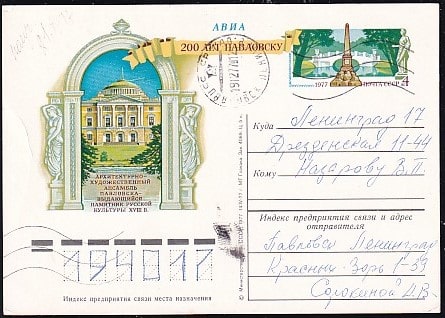 АВИА
200 ЛЕТ ПАВЛОВСКУ
1977
ПОЧТА СССР
4
АРХИТЕКТУРНО-
ХУДОЖЕСТВЕННЫЙ
АНСАМБЛЬ
ПАВЛОВСКА-
ВЫДАЮЩИЙСЯ
ПАМЯТНИК РУССКОЙ
КУЛЬТУРЫ XVIII В.
Куда Ленинград 17
Дрезденская 11-44
Кому Назарову В.П.
Индекс предприятия связи и адрес
отправителя
Павловск Ленинград
Красных Зорь 1-59
Сорокиной
194017
Индекс предприятия связи места назначения